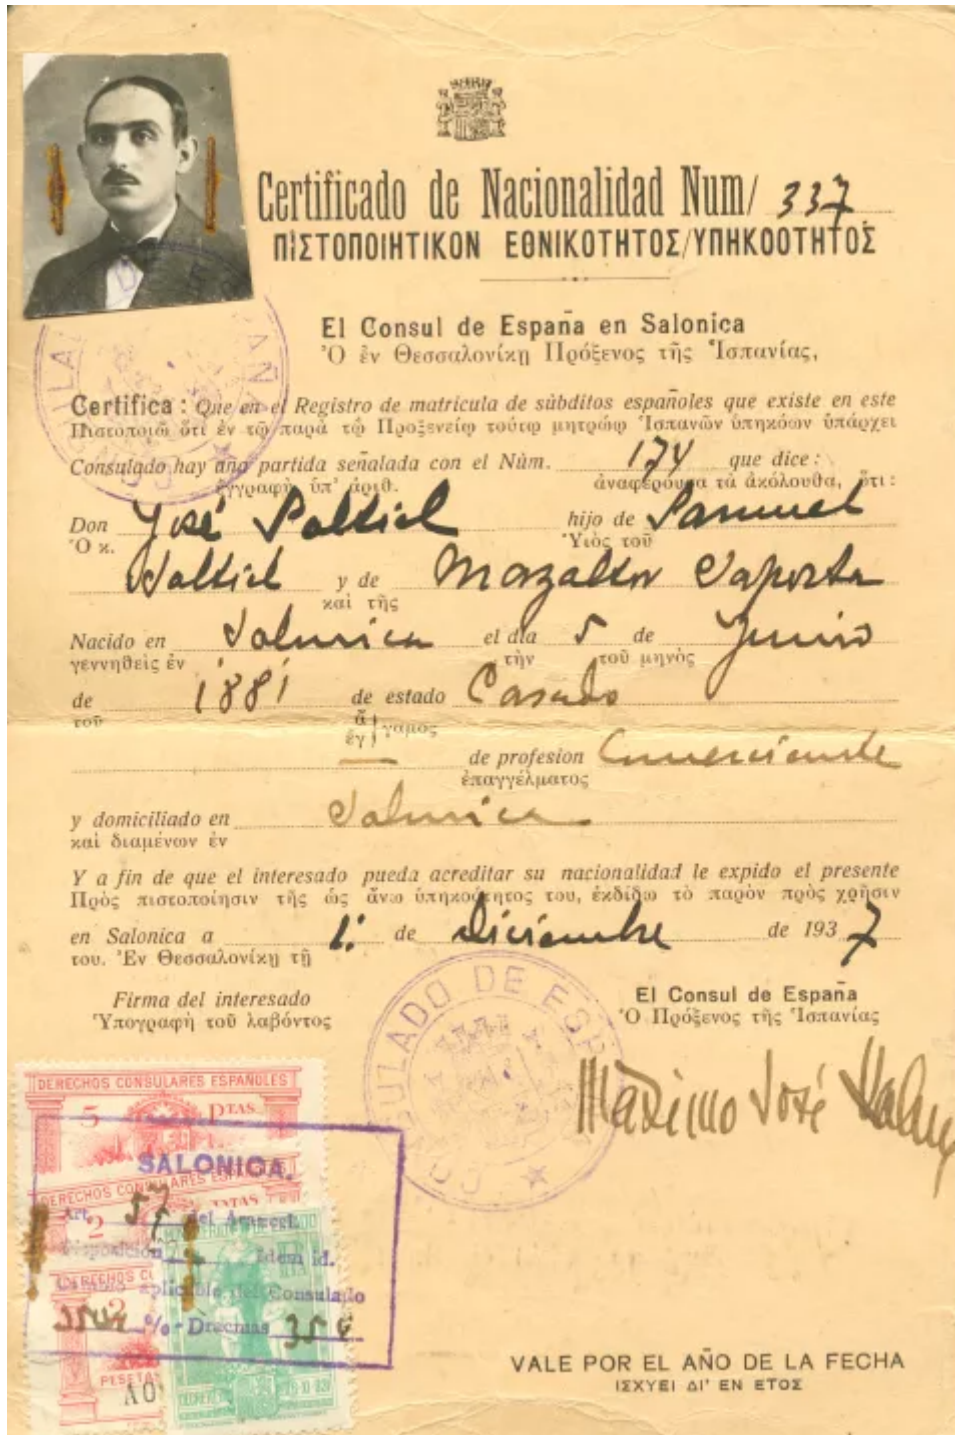 Certificado de Nacionalidad Num/ 337
ΠΙΣΤΟΠΟΙΗΤΙΚΟΝ ΕΘΝΙΚΟΤΗΤΟΣ/ΥΠΗΚΟΟΤΗΤΟΣ
El Consul de España en Salonica
Ὁ ἐν Θεσσαλονίκῃ Πρόξενος τῆς Ἱσπανίας,
Certifica: Que en el Registro de matricula de súbditos españoles que existe en este
Πιστοποιῶ ὅτι ἐν τῷ παρὰ τῷ Προξενείῳ τούτῳ μητρώῳ Ἱσπανῶν ὑπηκόων ὑπάρχει
Consulado hay una partida señalada con el Núm. 174 que dice:
ἐγγραφὴ ὑπ' ἀριθ. ἀναφέρουσα τὰ ἀκόλουθα, ὅτι:
Don José Saltiel hijo de Samuel
Ὁ κ. Υἱὸς τοῦ
Saltiel y de Mazaltov Saporta
καὶ τῆς
Nacido en Salonica el dia 5 de Junio
γεννηθεὶς ἐν τὴν τοῦ μηνὸς
de 1881 de estado Casado
τοῦ ἄ ἔγ γαμος
de profesion Comerciante
ἐπαγγέλματος
y domiciliado en Salonica
καὶ διαμένων ἐν
Y a fin de que el interesado pueda acreditar su nacionalidad le expido el presente
Πρὸς πιστοποίησιν τῆς ὡς ἄνω ὑπηκοότητος του, ἐκδίδω τὸ παρὸν πρὸς χρῆσιν
en Salonica a 1. de Diciembre de 1937
του. Ἐν Θεσσαλονίκῃ τῇ
Firma del interesado El Consul de España
Ὑπογραφὴ τοῦ λαβόντος Ὁ Πρόξενος τῆς Ἱσπανίας
CONSULADO DE ESP
Maximo José
DERECHOS CONSULARES ESPAÑOLES
5 PTAS.
SALONICA.
DERECHOS CONSULARES ESPAÑOLES
2
Art. 57 del Arancel.
Disposición Idem id.
Cambio aplicable del Consulado
% Dracmas 354
DERECHOS CO
2
PESETA
VALE POR EL AÑO DE LA FECHA
ΙΣΧΥΕΙ ΔΙ' ΕΝ ΕΤΟΣ